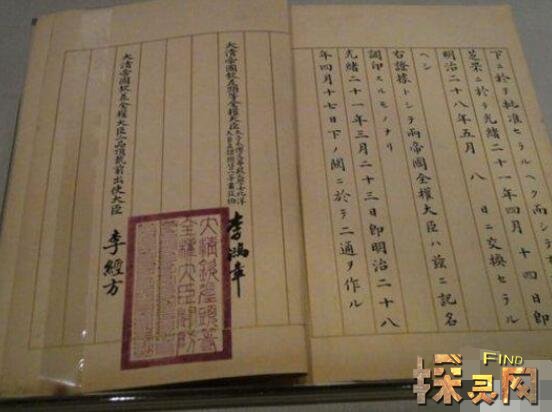 下ニ於テ批准セラルヘク而シテ
芝罘ニ於テ光緒二十一年四月十四日即
明治二十八年五月 八 日ニ交換セラル
ヘシ
右證據トシテ兩帝國全權大臣ハ茲ニ記名
調印スルモノナリ
光緒二十一年三月二十三日即明治二十八
年四月十七日下ノ關ニ於テ二通ヲ作ル
大清帝國欽差頭等全權大臣太子太傅文華殿大學士北洋
大臣直隸總督一等肅毅伯
李鴻章
大清帝國欽差全權大臣二品頂戴前出使大臣 李經方
大清欽差頭等
全權大臣關防
FIND
探灵网